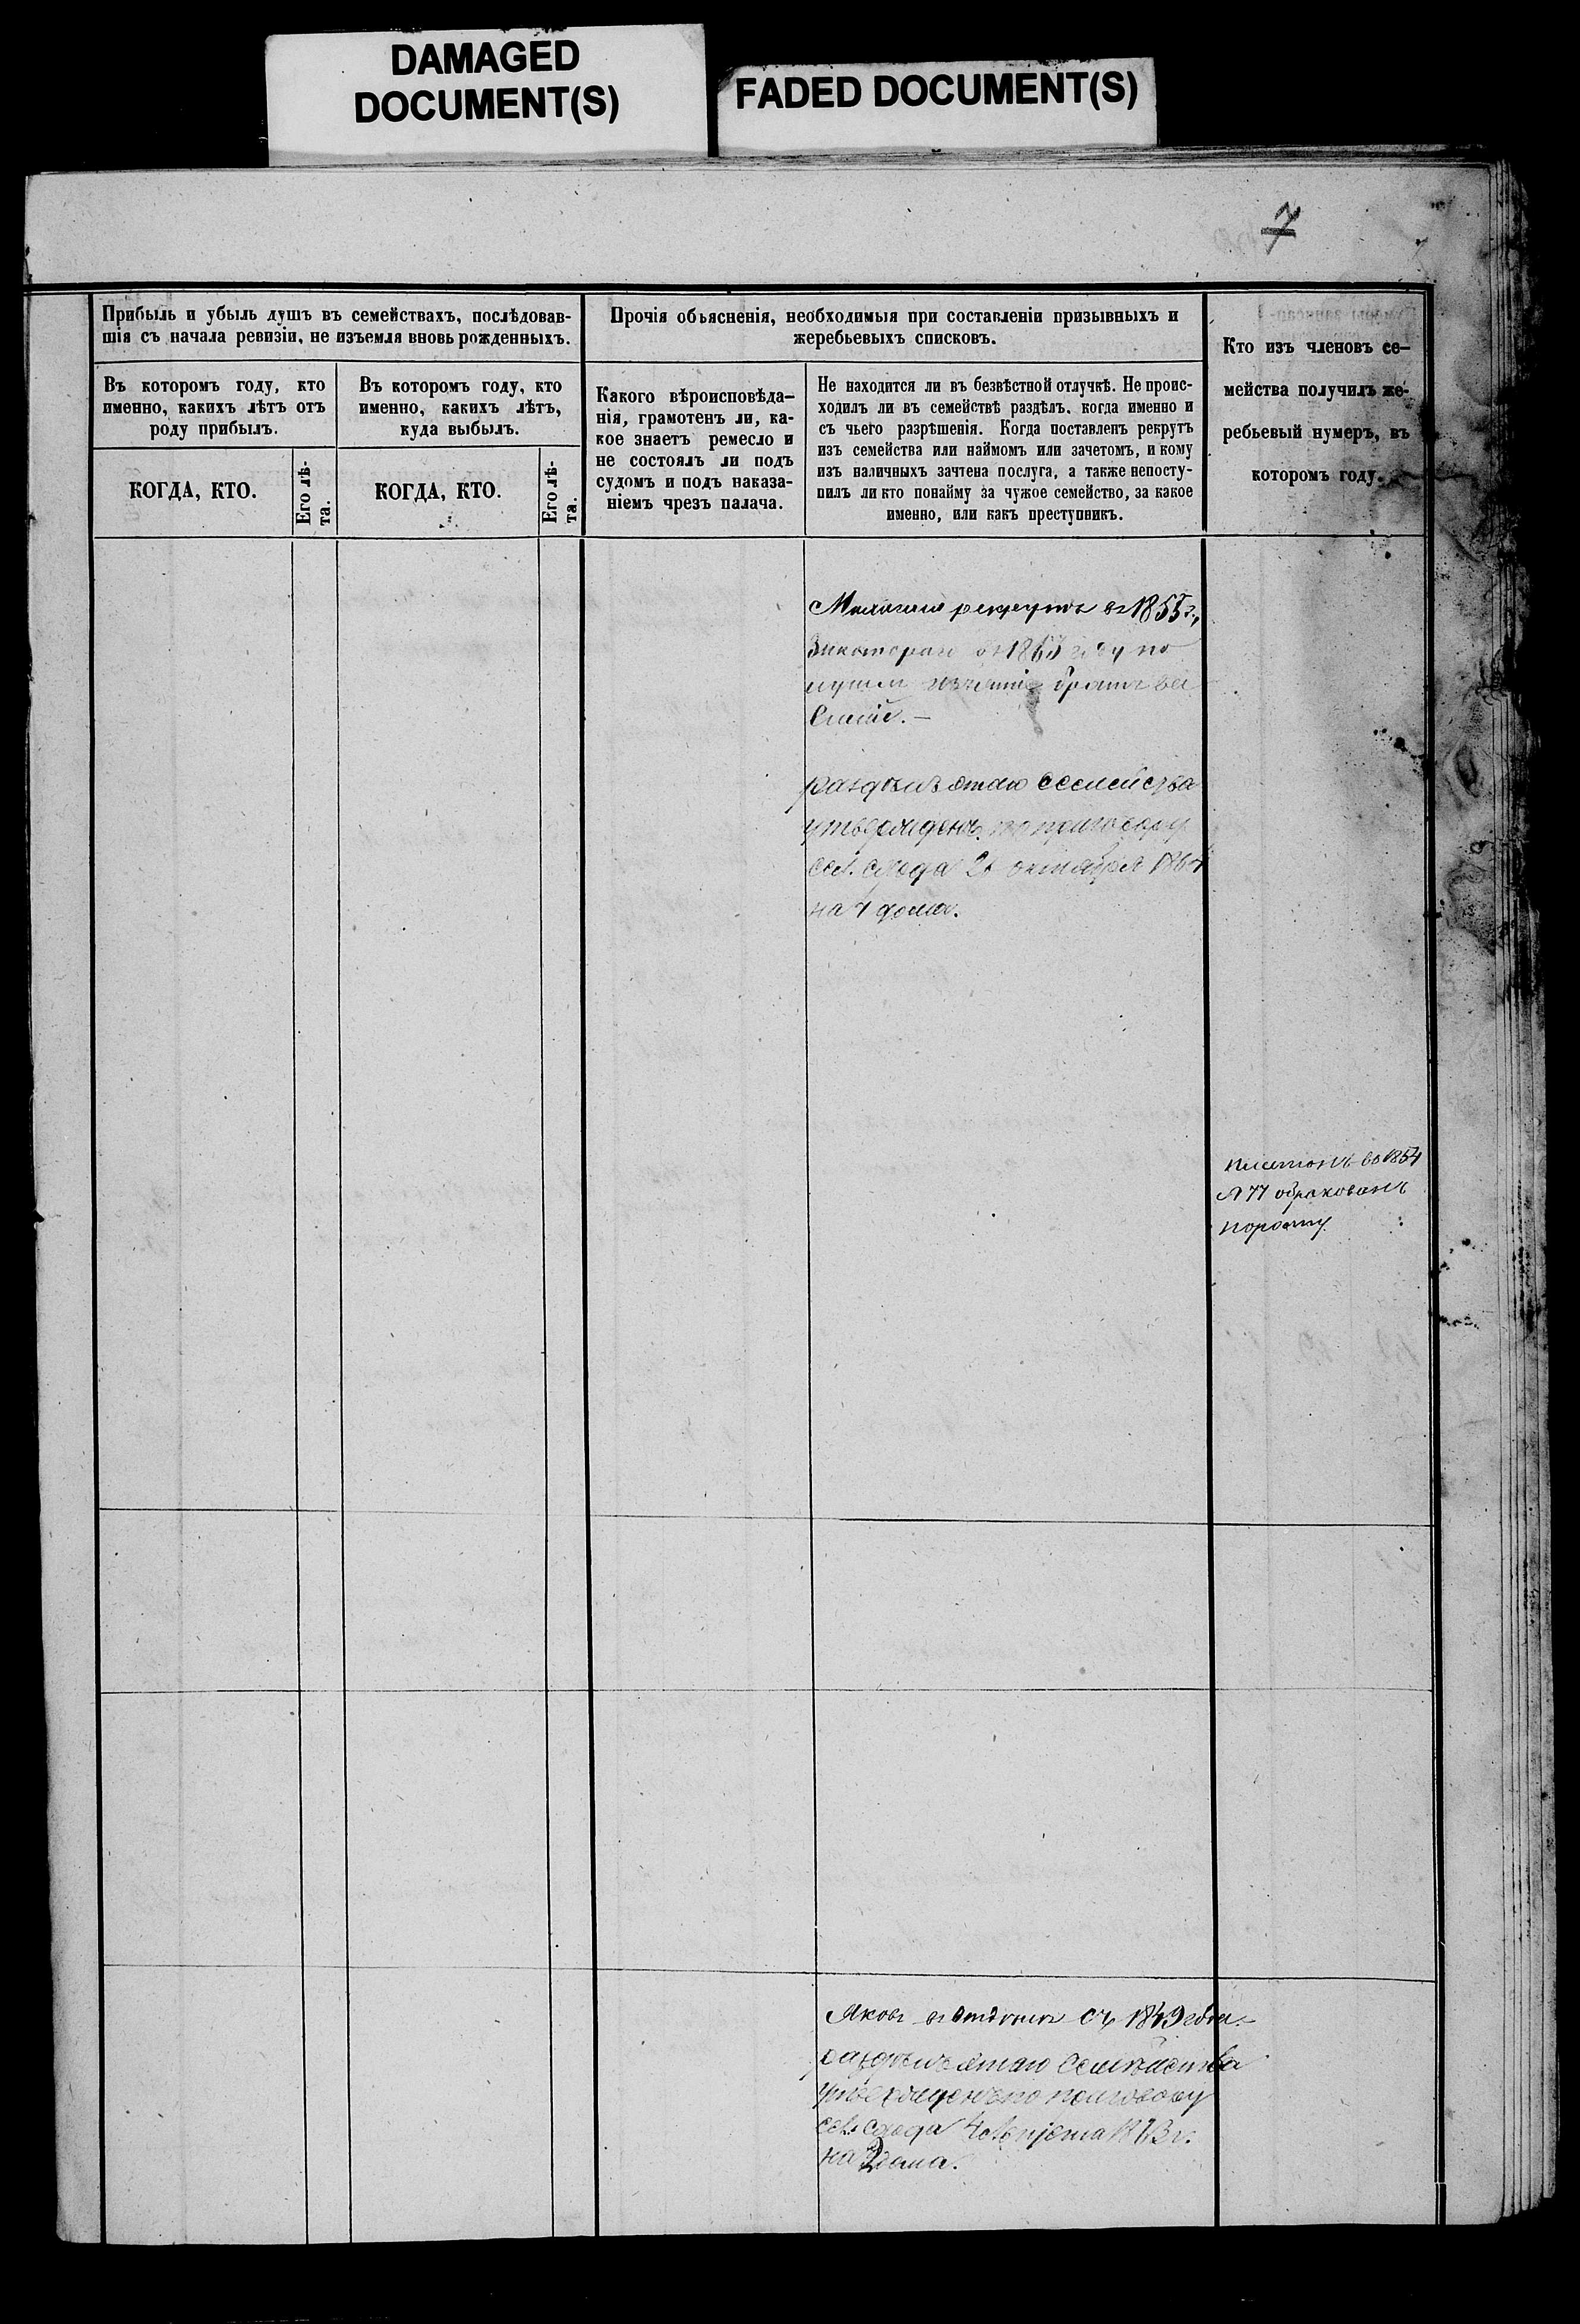 DAMAGED
DOCUMENT(S)
FADED DOCUMENT(S)
7
Прибыль и убыль душъ въ семействахъ, послѣдовав-
шія съ начала ревизіи, не изъемля вновь рожденныхъ.
Въ которомъ году, кто
именно, какихъ лѣтъ отъ
роду прибылъ.
КОГДА, КТО.
Его лѣ-
та.
Въ которомъ году, кто
именно, какихъ лѣтъ,
куда выбылъ.
КОГДА, КТО.
Его лѣ-
та.
Прочія обьясненія, необходимыя при составленіи призывныхъ и
жеребьевыхъ списковъ.
Какого вѣроисповѣда-
нія, грамотенъ ли, ка-
кое знаетъ ремесло и
не состоялъ ли подъ
судомъ и подъ наказа-
ніемъ чрезъ палача.
Не находится ли въ безвѣстной отлучкѣ. Не проис-
ходилъ ли въ семействѣ раздѣлъ, когда именно и
съ чьего разрѣшенія. Когда поставленъ рекрутъ
изъ семейства или наймомъ или зачетомъ, и кому
изъ наличныхъ зачтена послуга, а также непосту-
пилъ ли кто понайму за чужое семейство, за какое
именно, или какъ преступникъ.
Кто изъ членовъ се-
мейства получилъ же-
ребьевый нумеръ, въ
которомъ году.
рекрутъ въ 1855 г.,
году по
братъ Ва
раздѣлъ этаго Семейства
утвержденъ по приговору
сел. схода октября
на 4 дома.
въ 1854
№ 77 обракованъ
поросту
Яковъ съ 1849 года.
раздѣлъ этаго Семѣйства
утвержденъ по приговору
сел. схода
на 2 дома.